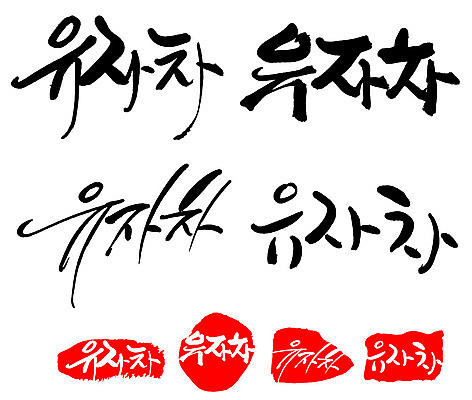 유자차 유자차
유자차 유자차
유자차 유자차 유자차 유자차